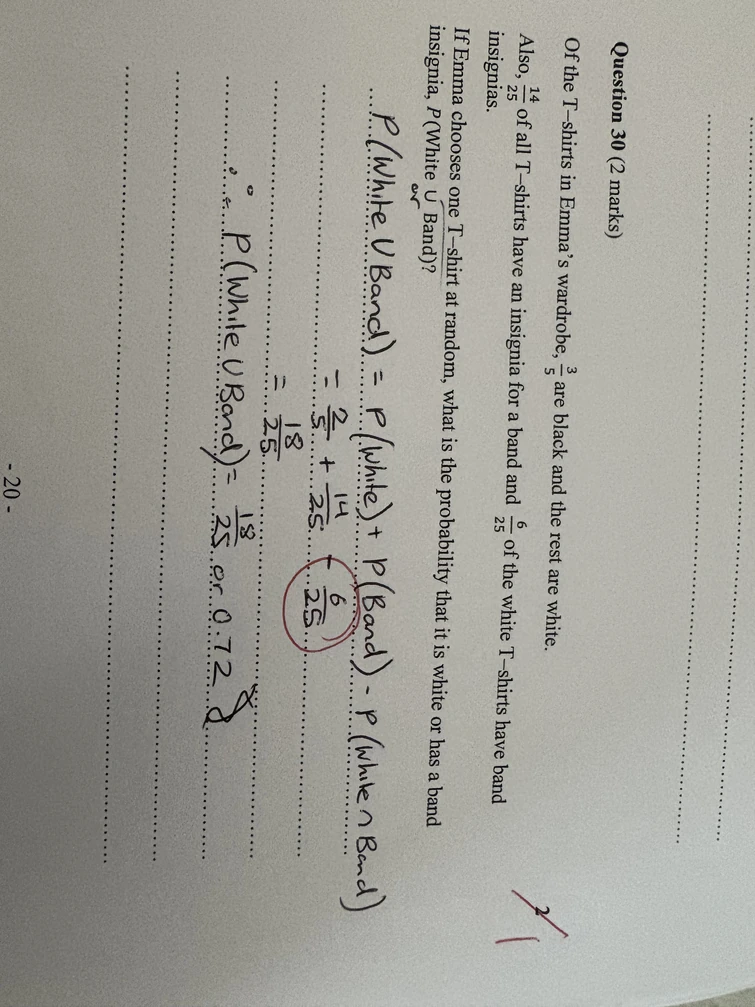 Question 30 (2 marks)
Of the T–shirts in Emma's wardrobe, 3/5 are black and the rest are white.
Also, 14/25 of all T–shirts have an insignia for a band and 6/25 of the white T–shirts have band
insignias.
If Emma chooses one T–shirt at random, what is the probability that it is white or has a band
insignia, P(White ∪ Band)?
or
P(White ∪ Band) = P(White) + P(Band) - P(White ∩ Band)
= 2/5 + 14/25 + 6/25
= 18/25
∴ P(White ∪ Band) = 18/25 or 0.72
2
1
- 20 -